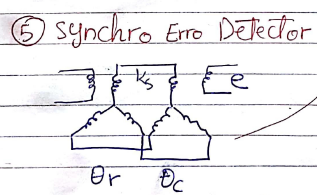 ⑤ Synchro Erro Detector
Ks e
θr θc